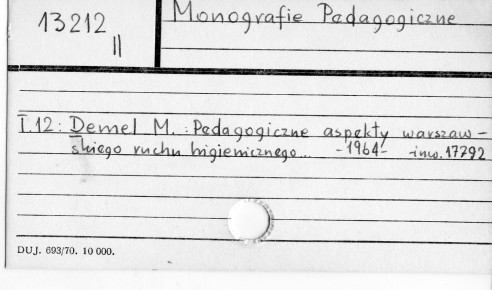 13212
II
Monografie Pedagogiczne
T.12: Demel M. : Pedagogiczne aspekty warszaw-
skiego ruchu higienicznego... -1964- inw. 17792
DUJ. 693/70. 10 000.